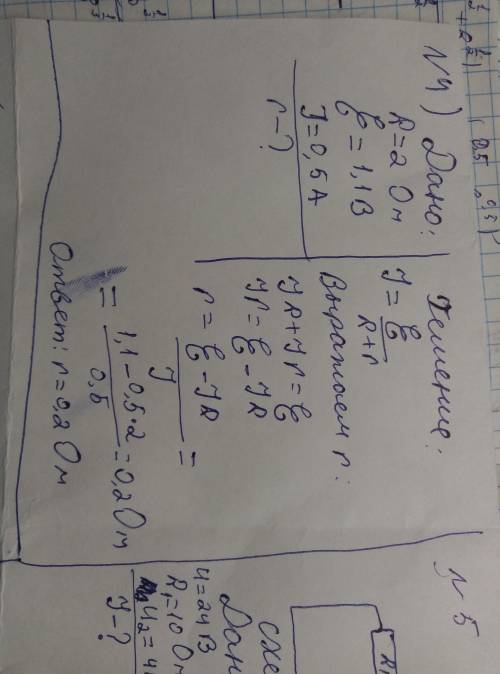 №4) Дано:
R=2 Ом
Ɛ=1,1В
I=0,5А
r-?
Решение:
I=Ɛ/R+r
Выражаем r:
IR+Ir=Ɛ
Ir=Ɛ-IR
r=Ɛ-IR/I=
=1,1-0,5·2/0,5=0,2Ом
Ответ: r=0,2 Ом
№5
схе
Дан
U=24В
R₁=10 Ом
U₂=4
I-?
R₁